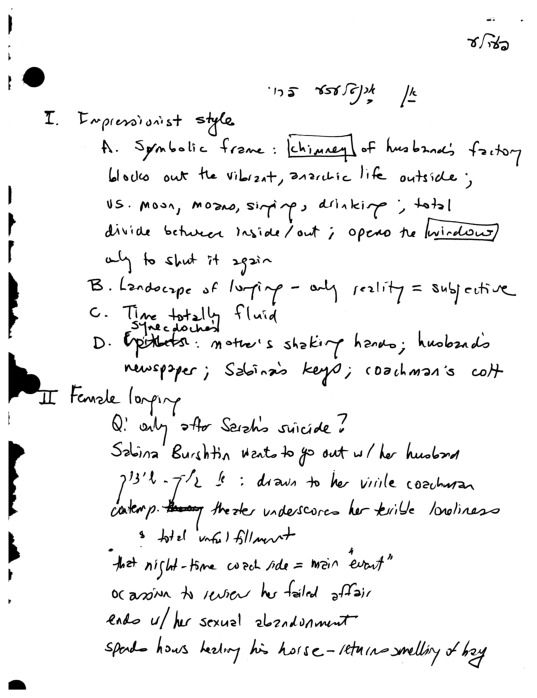 I. Impressionist style
A. Symbolic frame: chimney of husband's factory
blocks out the vibrant, anarchic life outside;
vs. moon, moans, singing, drinking; total
divide between inside/out; opens the window
only to shut it again
B. Landscape of longing - only reality = subjective
C. Time totally fluid
synecdoches
D. : mother's shaking hands; husband's
newspaper; Sabina's keys; coachman's colt
II Female longing
Q: only after Sarah's suicide?
Sabina Burshtin wants to go out w/ her husband
: drawn to her virile coachman
contemp. theater underscores her terrible loneliness
& total unfulfillment
that night-time coach ride = main "event"
occasion to review her failed affair
ends w/ her sexual abandonment
spends hours healing his horse - returns smelling of hay